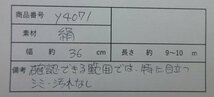 商品番号 Y4071
素材 絹
幅 約 36 cm 長さ 約 9~10 m
備考 確認できる範囲では、特に目立つ
シミ・汚れなし